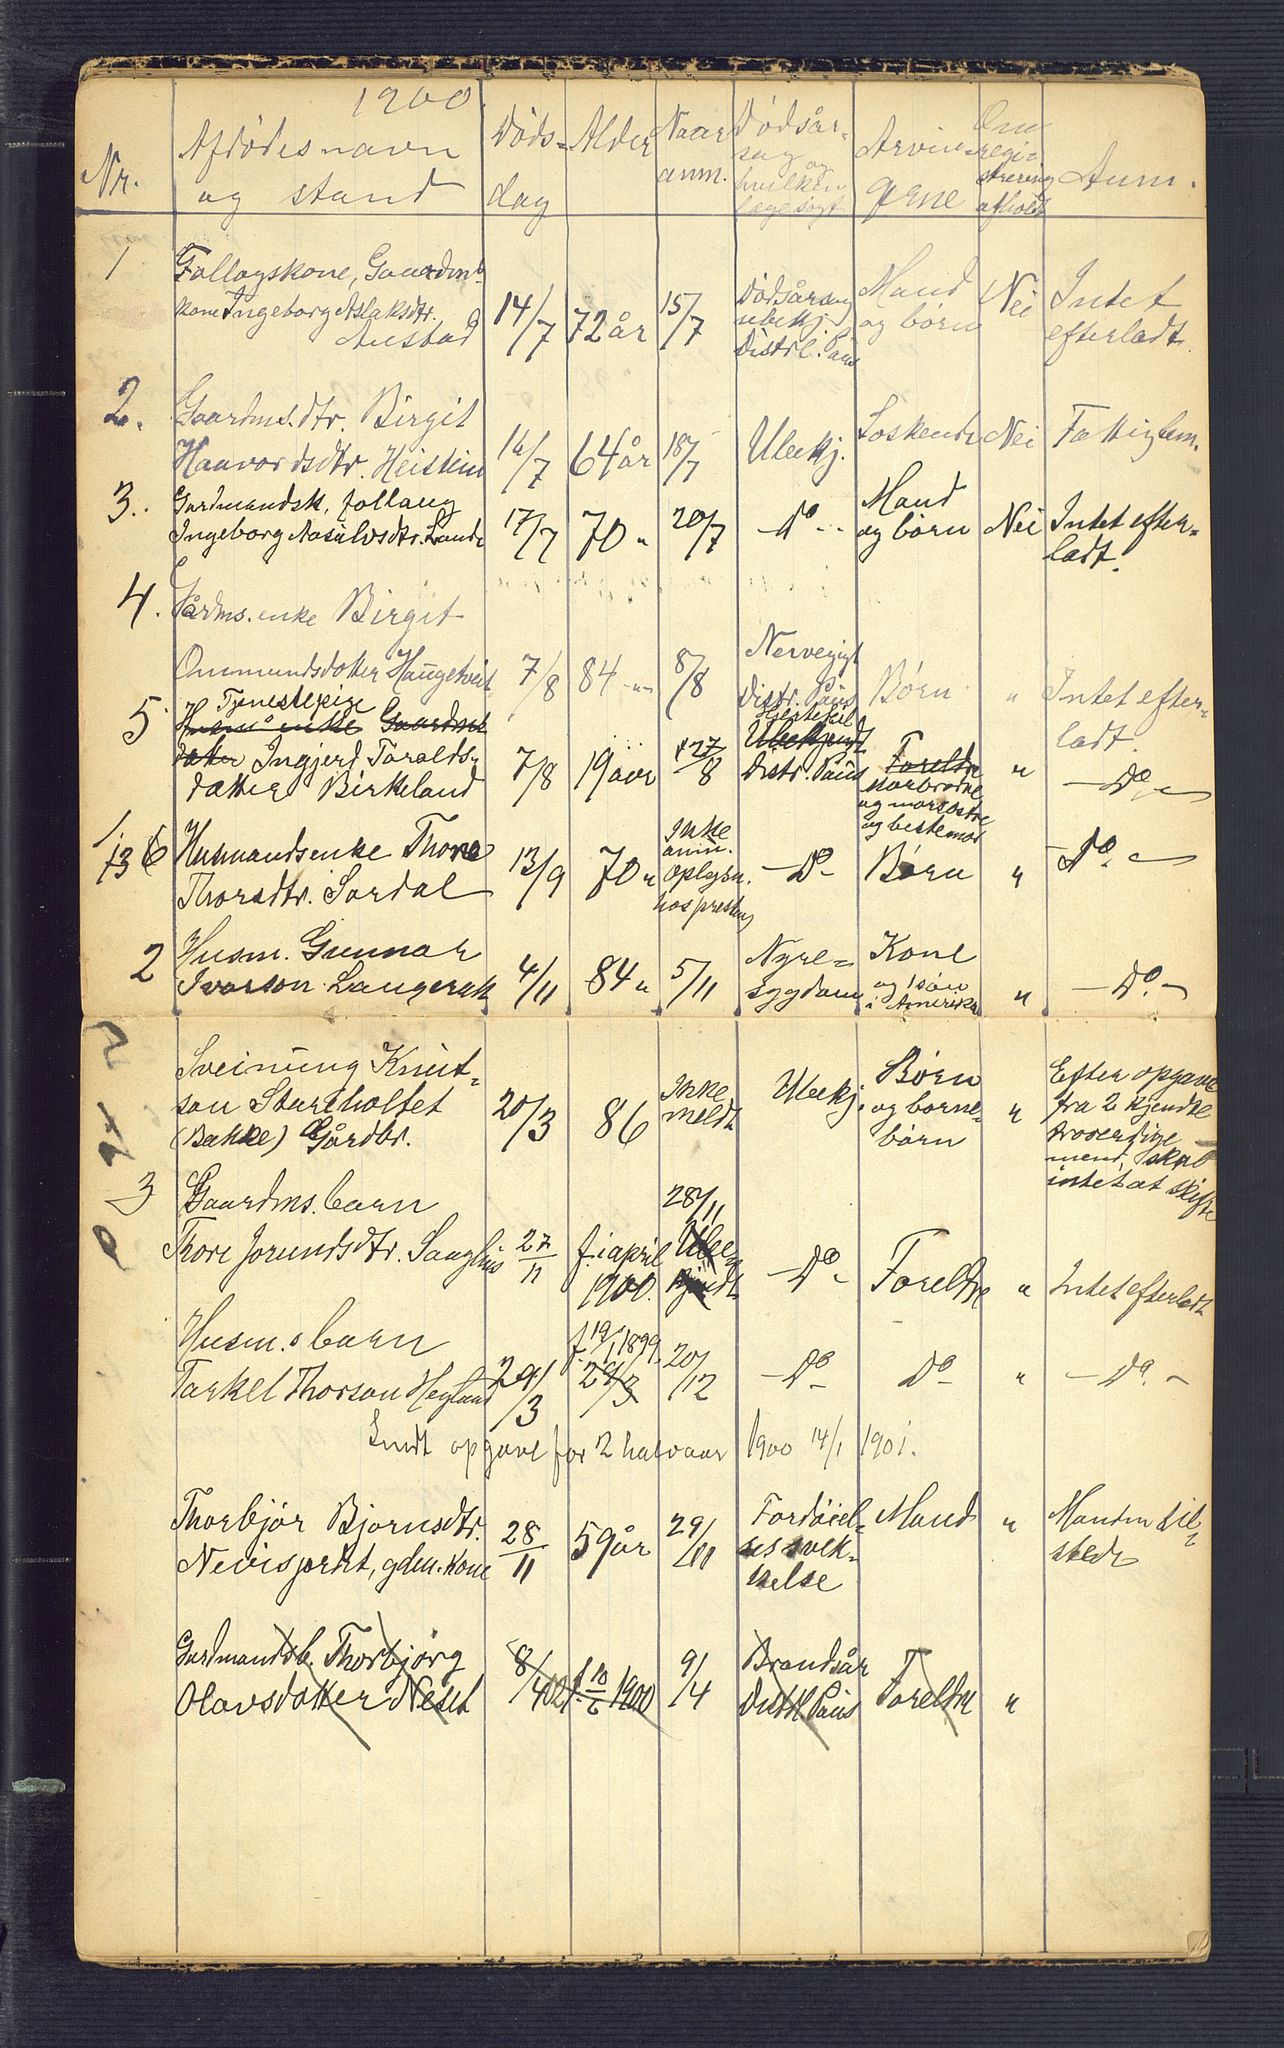 1900.
Nr. Afdödes navn og stand Döds- dag Alder Naar anm. Dødsår- sag og hvilken læge søgt Arvin- gerne Om regi- strering afholdt Anm.
1 Follogskone, Gaardm.
kone Ingeborg Aslaksdtr. 14/7 72 år 15/7 Dødsårsag ubekj. Distrl. Paus Mand og börn Nei Intet efterladt.
Austad
2. Gaardms.dtr. Birgit
Haavordsdtr. Heistein 16/7 64 år 18/7 Ubekj. Söskende Nei Fattiglem.
3. Gardmandsk. follaug
Ingeborg Aasulvsdtr. Lande 17/7 70 " 20/7 - Do - Mand og börn Nei Intet efter- ladt.
4. Gårdms. enke Birgit
Ommundsdatter Haugetveit 7/8 84 - " - 8/8 Nervegigt Distr. Paus Børn " Intet efter- ladt.
5 Tjenestepige
enke Gaardm
datter Ingjerd Toralds-
datter Birkeland 7/8 19 aar 27/8 Hjertefeil Ubekjendt Distr. Paus Foreldre
morbrødre
og morsøstre
og bestemor " - Do -
1/13 6 Husmandsenke Thore
Thorsdtr. Sordal 13/9 70 " Ikke anm. Oplysn. hos presten - Do - Børn " - Do. -
2 Husm. Gunnar
Ivorson Langerak 4/11 84 " 5/11 Nyre- sygdom Kone og 1 søn i Amerika " - Do. -
Sveinung Knut-
son Stureholtet
(Bakke) Gårdbr. 20/3 86 Ikke meldt Ubekj. Børn og borne- börn " Efter opgave
fra 2 kjendte
troverdige
mend, skal
intet at skifte
3 Gaardms. barn
Thore Jorundsdtr. Sanghus 27/11 f. i april 1900. 28/11 Ube- kjendt - Do - Foreldre " Intet efterladt
Husm.s barn
Tarkel Thorson Hegland 29/3 f. 19/1 1899. 29/3 20/12 - Do - Do - " - Do. -
Sendt opgave for 2 halvaar 1900 14/1 1901.
Thorbjør Bjornsdtr.
Nevisjordet, gdm. kone 28/11 59 år 29/11 Fordöiel- ses svek- kelse Mand " Manden til- stede
Gardmandsb. Thorbjörg
Olavsdatter Neset 8/4 02 f. 10/6 1900 9/4 Brandsår Distrl. Paus Foreldre "